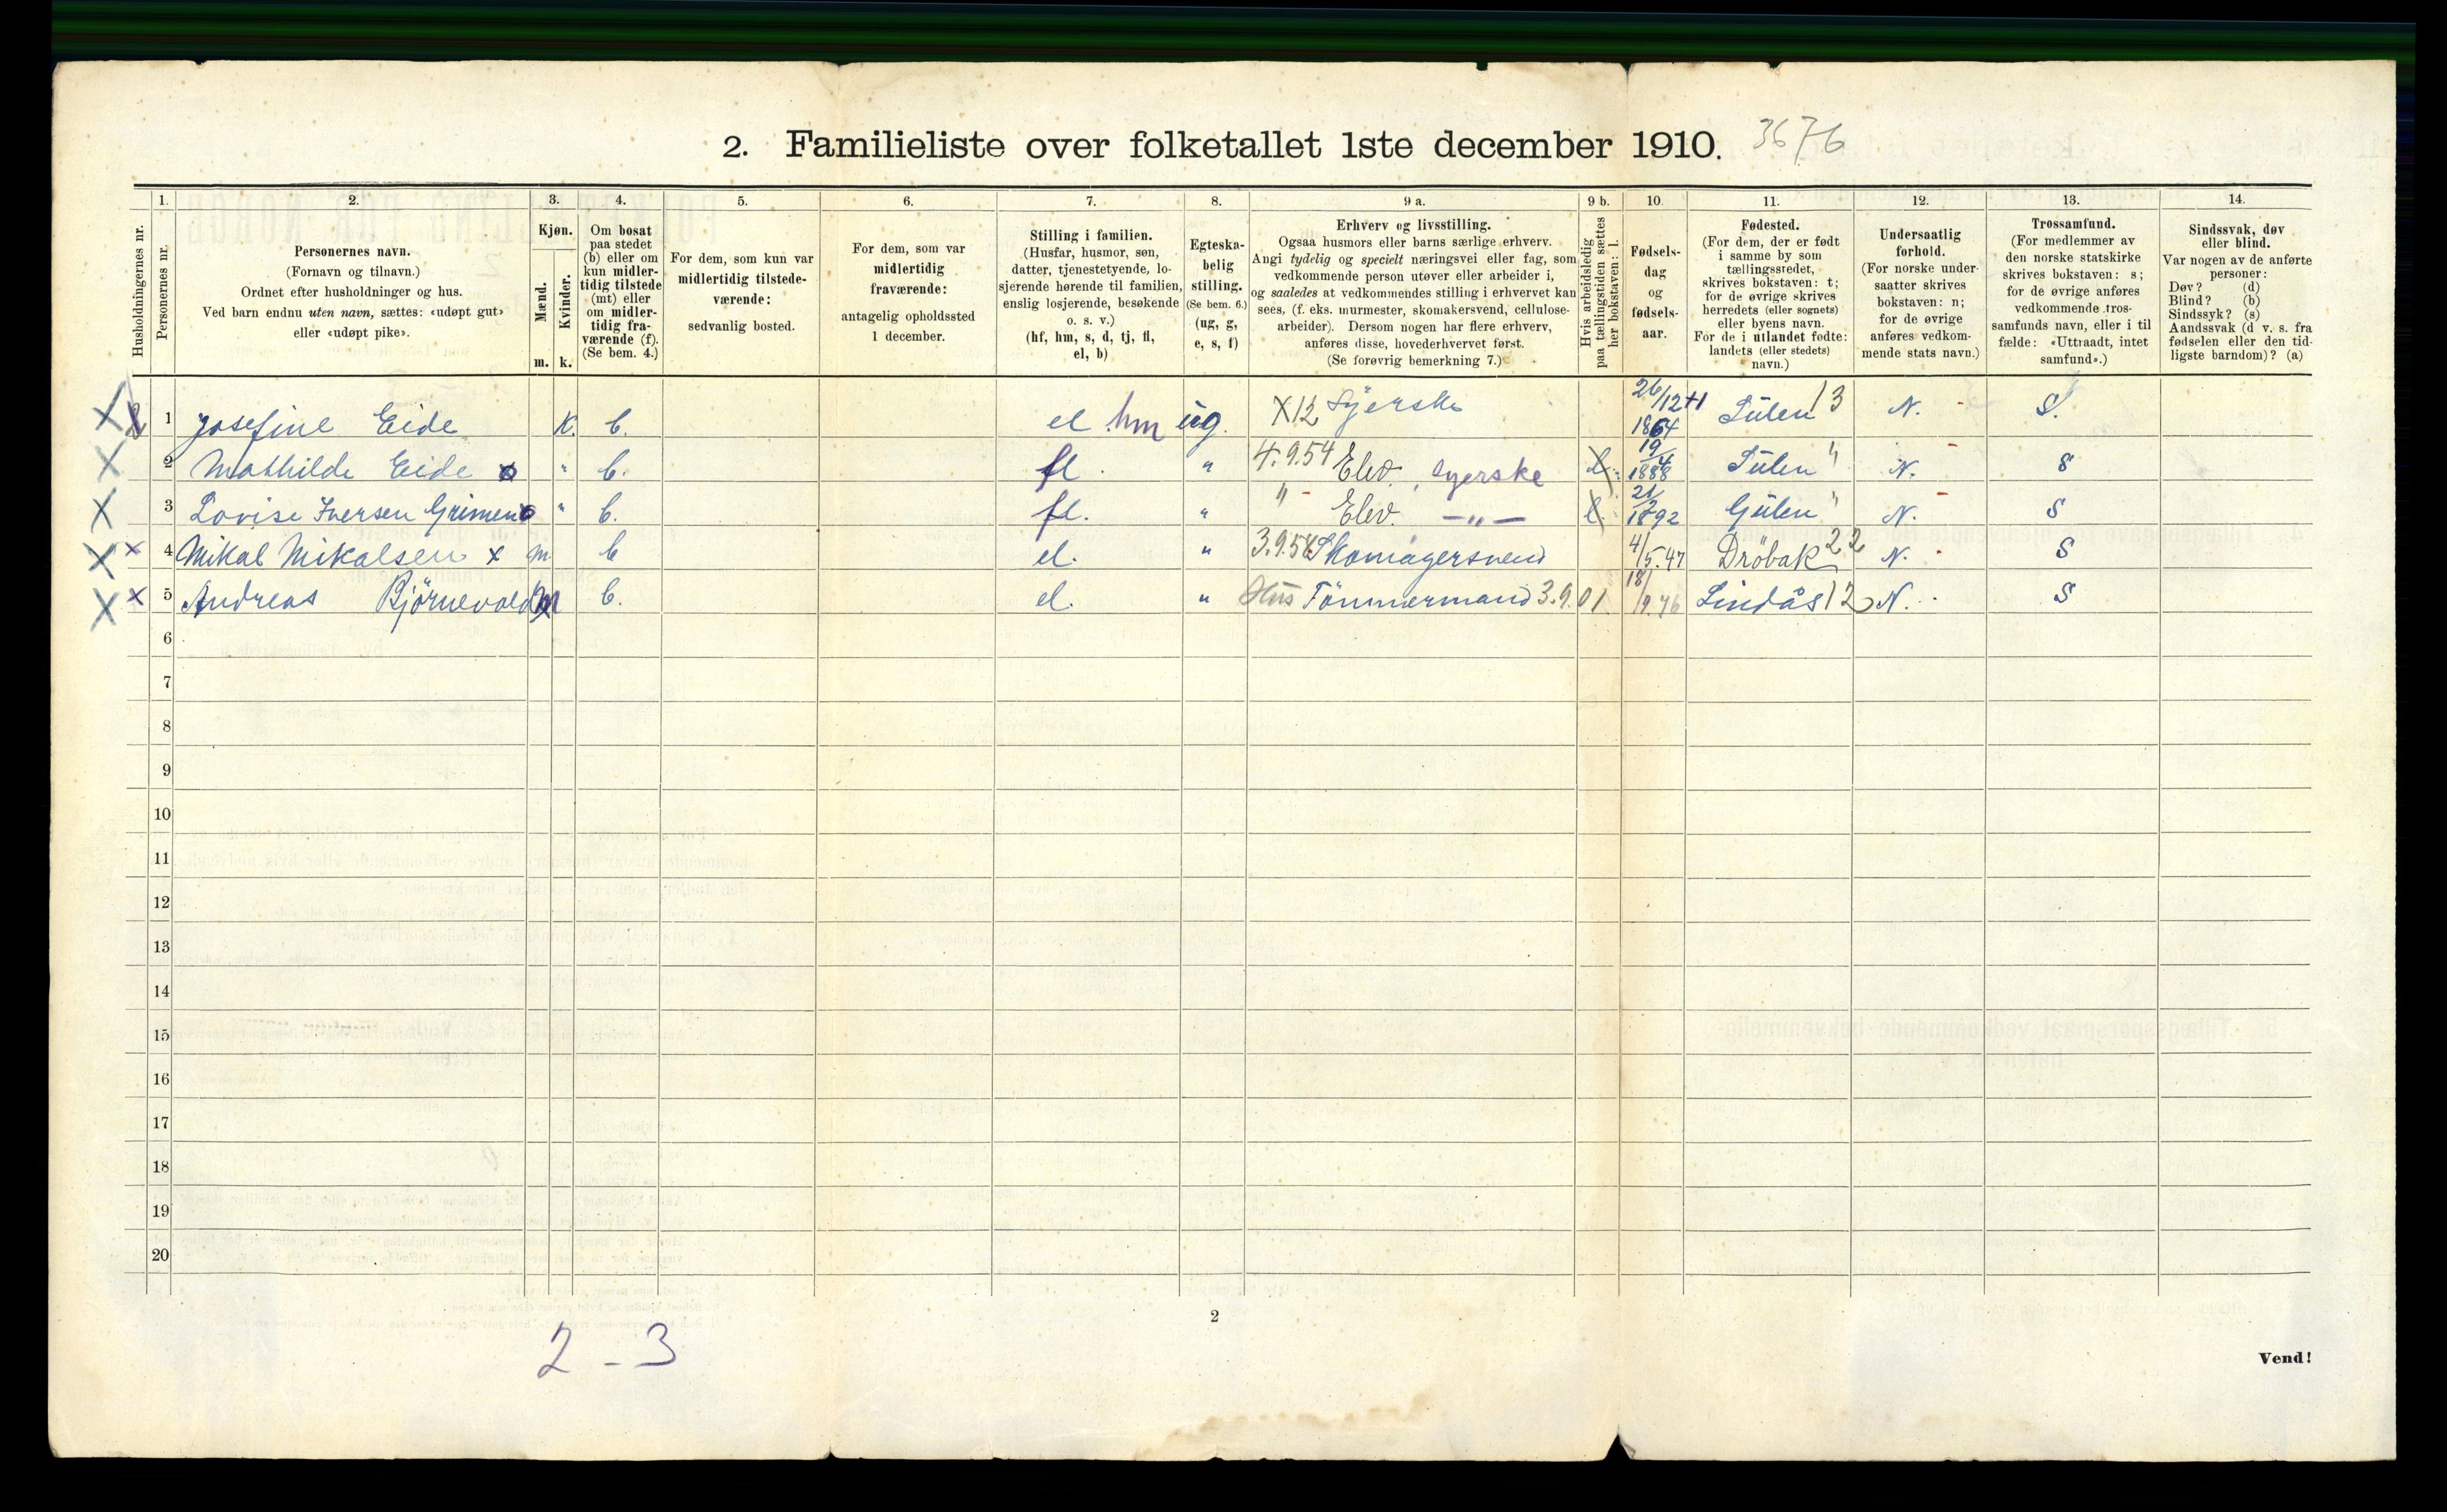 2. Familieliste over folketallet 1ste december 1910. 3676
Husholdningernes nr.
1. Personernes nr.
2. Personernes navn.
(Fornavn og tilnavn.)
Ordnet efter husholdninger og hus.
Ved barn endnu uten navn, sættes: «udøpt gut»
eller «udøpt pike».
3. Kjøn.
Mænd. Kvinder.
m. k.
4. Om bosat
paa stedet
(b) eller om
kun midler-
tidig tilstede
(mt) eller
om midler-
tidig fra-
værende (f).
(Se bem. 4.)
5. For dem, som kun var
midlertidig tilstede-
værende:
sedvanlig bosted.
6. For dem, som var
midlertidig
fraværende:
antagelig opholdssted
1 december.
7. Stilling i familien.
(Husfar, husmor, søn,
datter, tjenestetyende, lo-
sjerende hørende til familien,
enslig losjerende, besøkende
o. s. v.)
(hf, hm, s, d, tj, fl,
el, b)
8. Egteska-
belig
stilling.
(Se bem. 6.)
(ug, g,
e, s, f)
9 a. Erhverv og livsstilling.
Ogsaa husmors eller barns særlige erhverv.
Angi tydelig og specielt næringsvei eller fag, som
vedkommende person utøver eller arbeider i,
og saaledes at vedkommendes stilling i erhvervet kan
sees, (f. eks. murmester, skomakersvend, cellulose-
arbeider). Dersom nogen har flere erhverv,
anføres disse, hovederhvervet først.
(Se forøvrig bemerkning 7.)
9 b. Hvis arbeidsledig
paa tællingstiden sættes
her bokstaven: l.
10. Fødsels-
dag
og
fødsels-
aar.
11. Fødested.
(For dem, der er født
i samme by som
tællingsstedet,
skrives bokstaven: t;
for de øvrige skrives
herredets (eller sognets)
eller byens navn.
For de i utlandet fødte:
landets (eller stedets)
navn.)
12. Undersaatlig
forhold.
(For norske under-
saatter skrives
bokstaven: n;
for de øvrige
anføres vedkom-
mende stats navn.)
13. Trossamfund.
(For medlemmer av
den norske statskirke
skrives bokstaven: s;
for de øvrige anføres
vedkommende tros-
samfunds navn, eller i til
fælde: «Uttraadt, intet
samfund».)
14. Sindssvak, døv
eller blind.
Var nogen av de anførte
personer:
Døv? (d)
Blind? (b)
Sindssyk? (s)
Aandssvak (d v. s. fra
fødselen eller den tid-
ligste barndom)? (a)
1 Josefine Eide K. b. el hm ug. X12 Syerske 26/12 1864 Gulen 13 N. S.
2 Mathilde Eide o " b. fl. " 4.9.54 Elev. syerske l. 19/4 1888 Gulen " N. S
3 Lovise Iversen Grimen o " b. fl. " " Elev. — " — l. 21/2 1892 Gulen " N. S
4 Mikal Mikalsen x m b el. " 3.9.54 Skomagersvend 4/5.47 Dröbak 22 N. S
5 Andreas Björnevold m b. el. " Hus Tömmermand 3.9.01 18/9.76 Lindås 12 N. S
6
7
8
9
10
11
12
13
14
15
16
17
18
19
20
2
2 - 3
Vend!